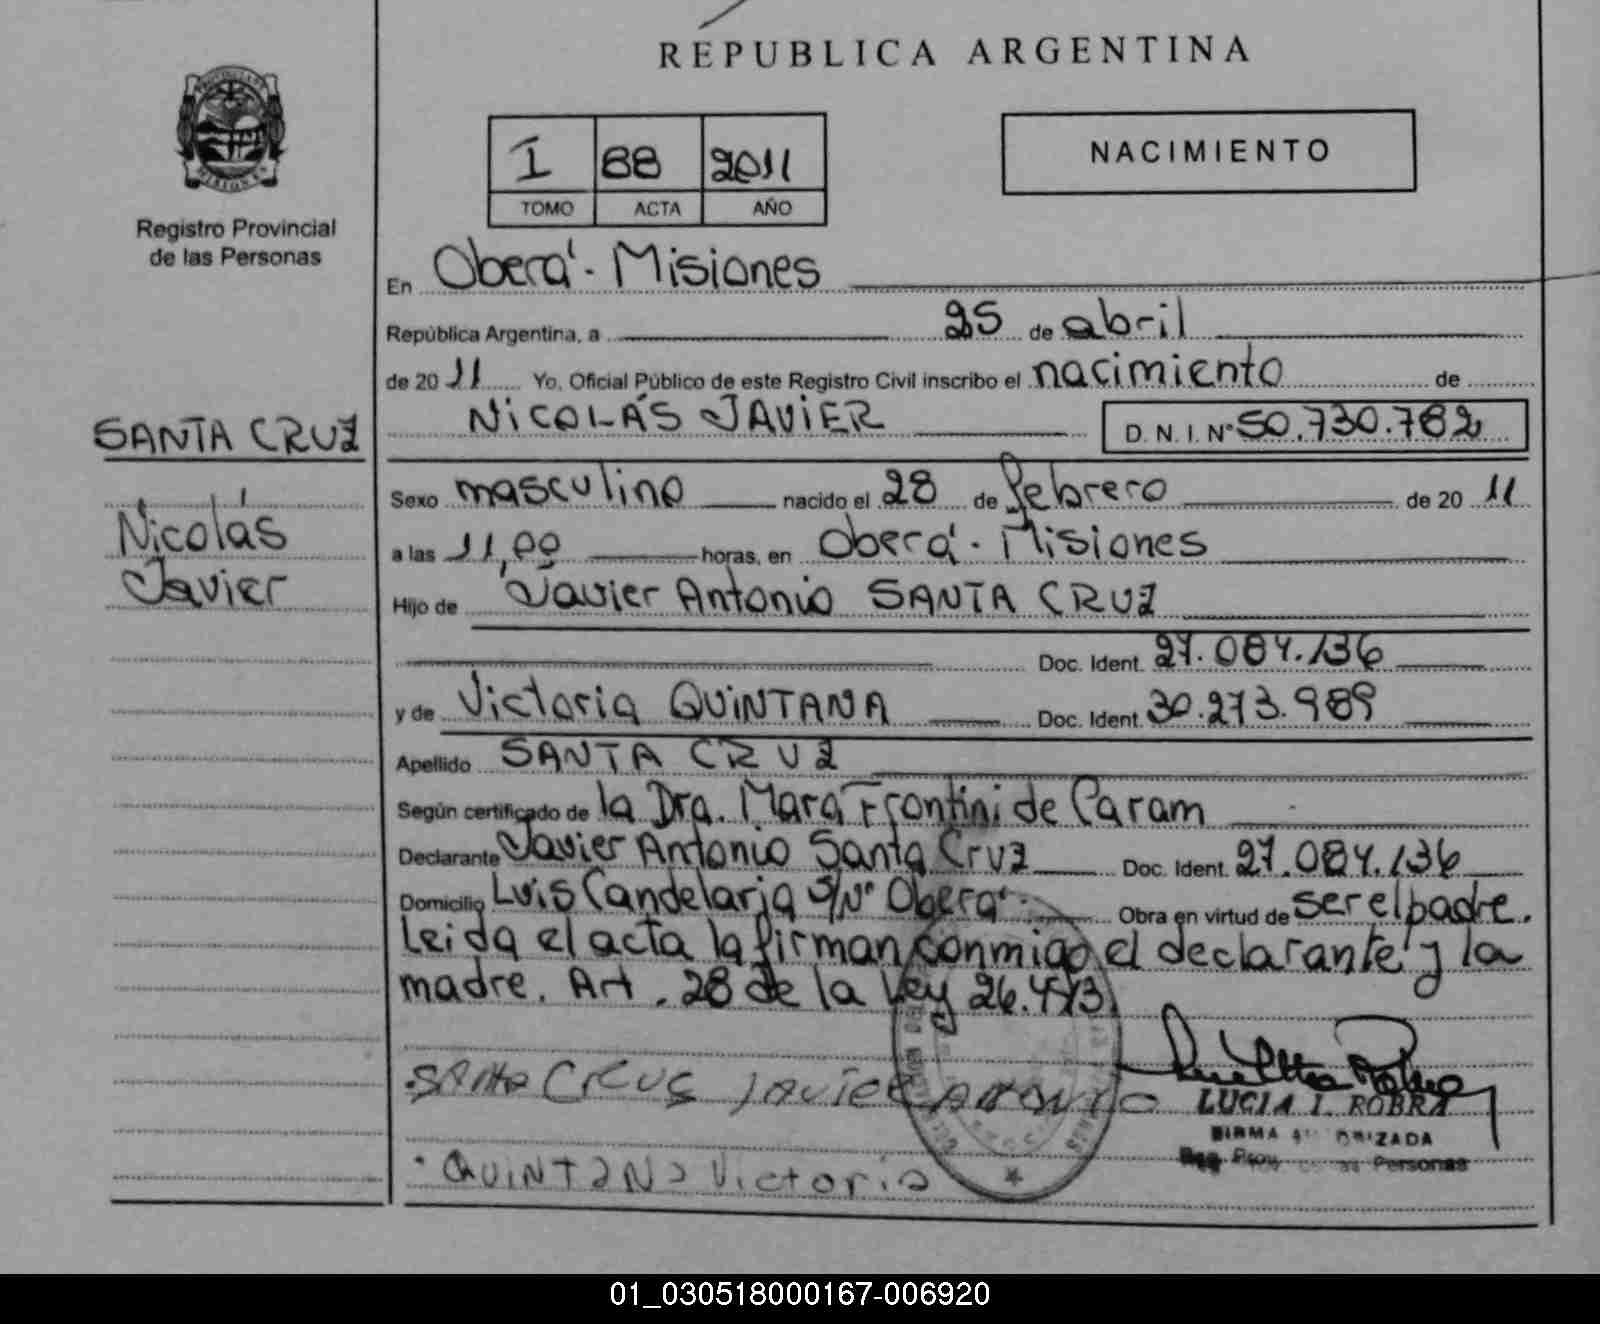 REPUBLICA ARGENTINA
I 88 2011
TOMO ACTA AÑO
NACIMIENTO
Registro Provincial
de las Personas
SANTA CRUZ
Nicolás
Javier
En Oberá - Misiones
República Argentina, a 25 de abril
de 2011 Yo, Oficial Público de este Registro Civil inscribo el nacimiento de
NICOLÁS JAVIER D. N. I. Nº 50.730.782
Sexo masculino nacido el 28 de febrero de 2011
a las 11,00 horas, en Oberá - Misiones
Hijo de Javier Antonio SANTA CRUZ
Doc. Ident. 27.084.136
y de Victoria QUINTANA Doc. Ident. 30.273.989
Apellido SANTA CRUZ
Según certificado de la Dra. Mara Frontini de Caram
Declarante Javier Antonio Santa Cruz Doc. Ident. 27.084.136
Domicilio Luis Candelaria S/Nº Oberá Obra en virtud de ser el padre.
Leida el acta la firman conmigo el declarante y la
madre. Art. 28 de la Ley 26.413.
SANTA CRUS JAVIER ANTONIO
QUINTANA Victoria
LUCIA I. ROBRA
FIRMA AUTORIZADA
Reg. Prov. de las Personas
01_030518000167-006920